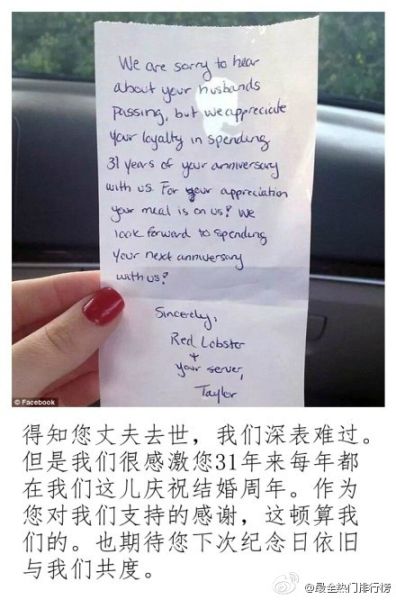 We are sorry to hear
about your husbands
Passing, but we appreciate
Your loyalty in spending
31 years of your anniversary
with us. For your appreciation
your meal is on us! We
look forward to spending
Your next anniversary
with us!
Sincerely,
Red Lobster
+
your server,
Taylor
© Facebook
得知您丈夫去世，我们深表难过。
但是我们很感激您31年来每年都
在我们这儿庆祝结婚周年。作为
您对我们支持的感谢，这顿算我
们的。也期待您下次纪念日依旧
与我们共度。
@最全热门排行榜